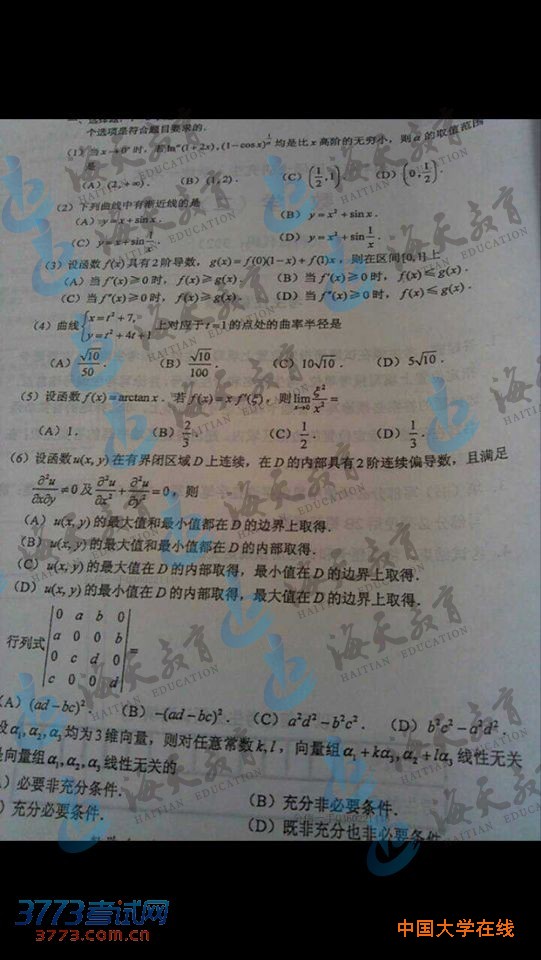 一、选择题：
个选项是符合题目要求的.
(1) 当x→0⁺时，若lnᵅ(1+2x), (1-cosx)^{1/α} 均是比x高阶的无穷小，则α的取值范围
是
(A) (2,+∞). (B) (1,2). (C) (1/2,1). (D) (0,1/2).
(2) 下列曲线中有渐近线的是
(A) y=x+sinx. (B) y=x²+sinx.
(C) y=x+sin 1/x. (D) y=x²+sin 1/x.
(3) 设函数f(x)具有2阶导数，g(x)=f(0)(1-x)+f(1)x，则在区间[0,1]上
(A) 当f'(x)≥0时，f(x)≥g(x). (B) 当f'(x)≥0时，f(x)≤g(x).
(C) 当f''(x)≥0时，f(x)≥g(x). (D) 当f''(x)≥0时，f(x)≤g(x).
(4) 曲线{x=t²+7, y=t²+4t+1 上对应于t=1的点处的曲率半径是
(A) √10/50. (B) √10/100. (C) 10√10. (D) 5√10.
(5) 设函数f(x)=arctanx. 若f(x)=xf'(ξ)，则lim_{x→0} ξ²/x²=
(A) 1. (B) 2/3. (C) 1/2. (D) 1/3.
(6) 设函数u(x,y)在有界闭区域D上连续，在D的内部具有2阶连续偏导数，且满足
∂²u/∂x∂y≠0及∂²u/∂x²+∂²u/∂y²=0，则
(A) u(x,y)的最大值和最小值都在D的边界上取得.
(B) u(x,y)的最大值和最小值都在D的内部取得.
(C) u(x,y)的最大值在D的内部取得，最小值在D的边界上取得.
(D) u(x,y)的最小值在D的内部取得，最大值在D的边界上取得.
行列式
|0 a b 0|
|a 0 0 b|
|0 c d 0|
|c 0 0 d| =
(A) (ad-bc)². (B) -(ad-bc)². (C) a²d²-b²c². (D) b²c²-a²d².
设α₁,α₂,α₃均为3维向量，则对任意常数k,l，向量组α₁+kα₃,α₂+lα₃线性无关
是向量组α₁,α₂,α₃线性无关的
) 必要非充分条件. (B) 充分非必要条件.
) 充分必要条件. (D) 既非充分也非必要条件
海天教育
HAITIAN EDUCATION
3773考试网
3773.com.cn
中国大学在线